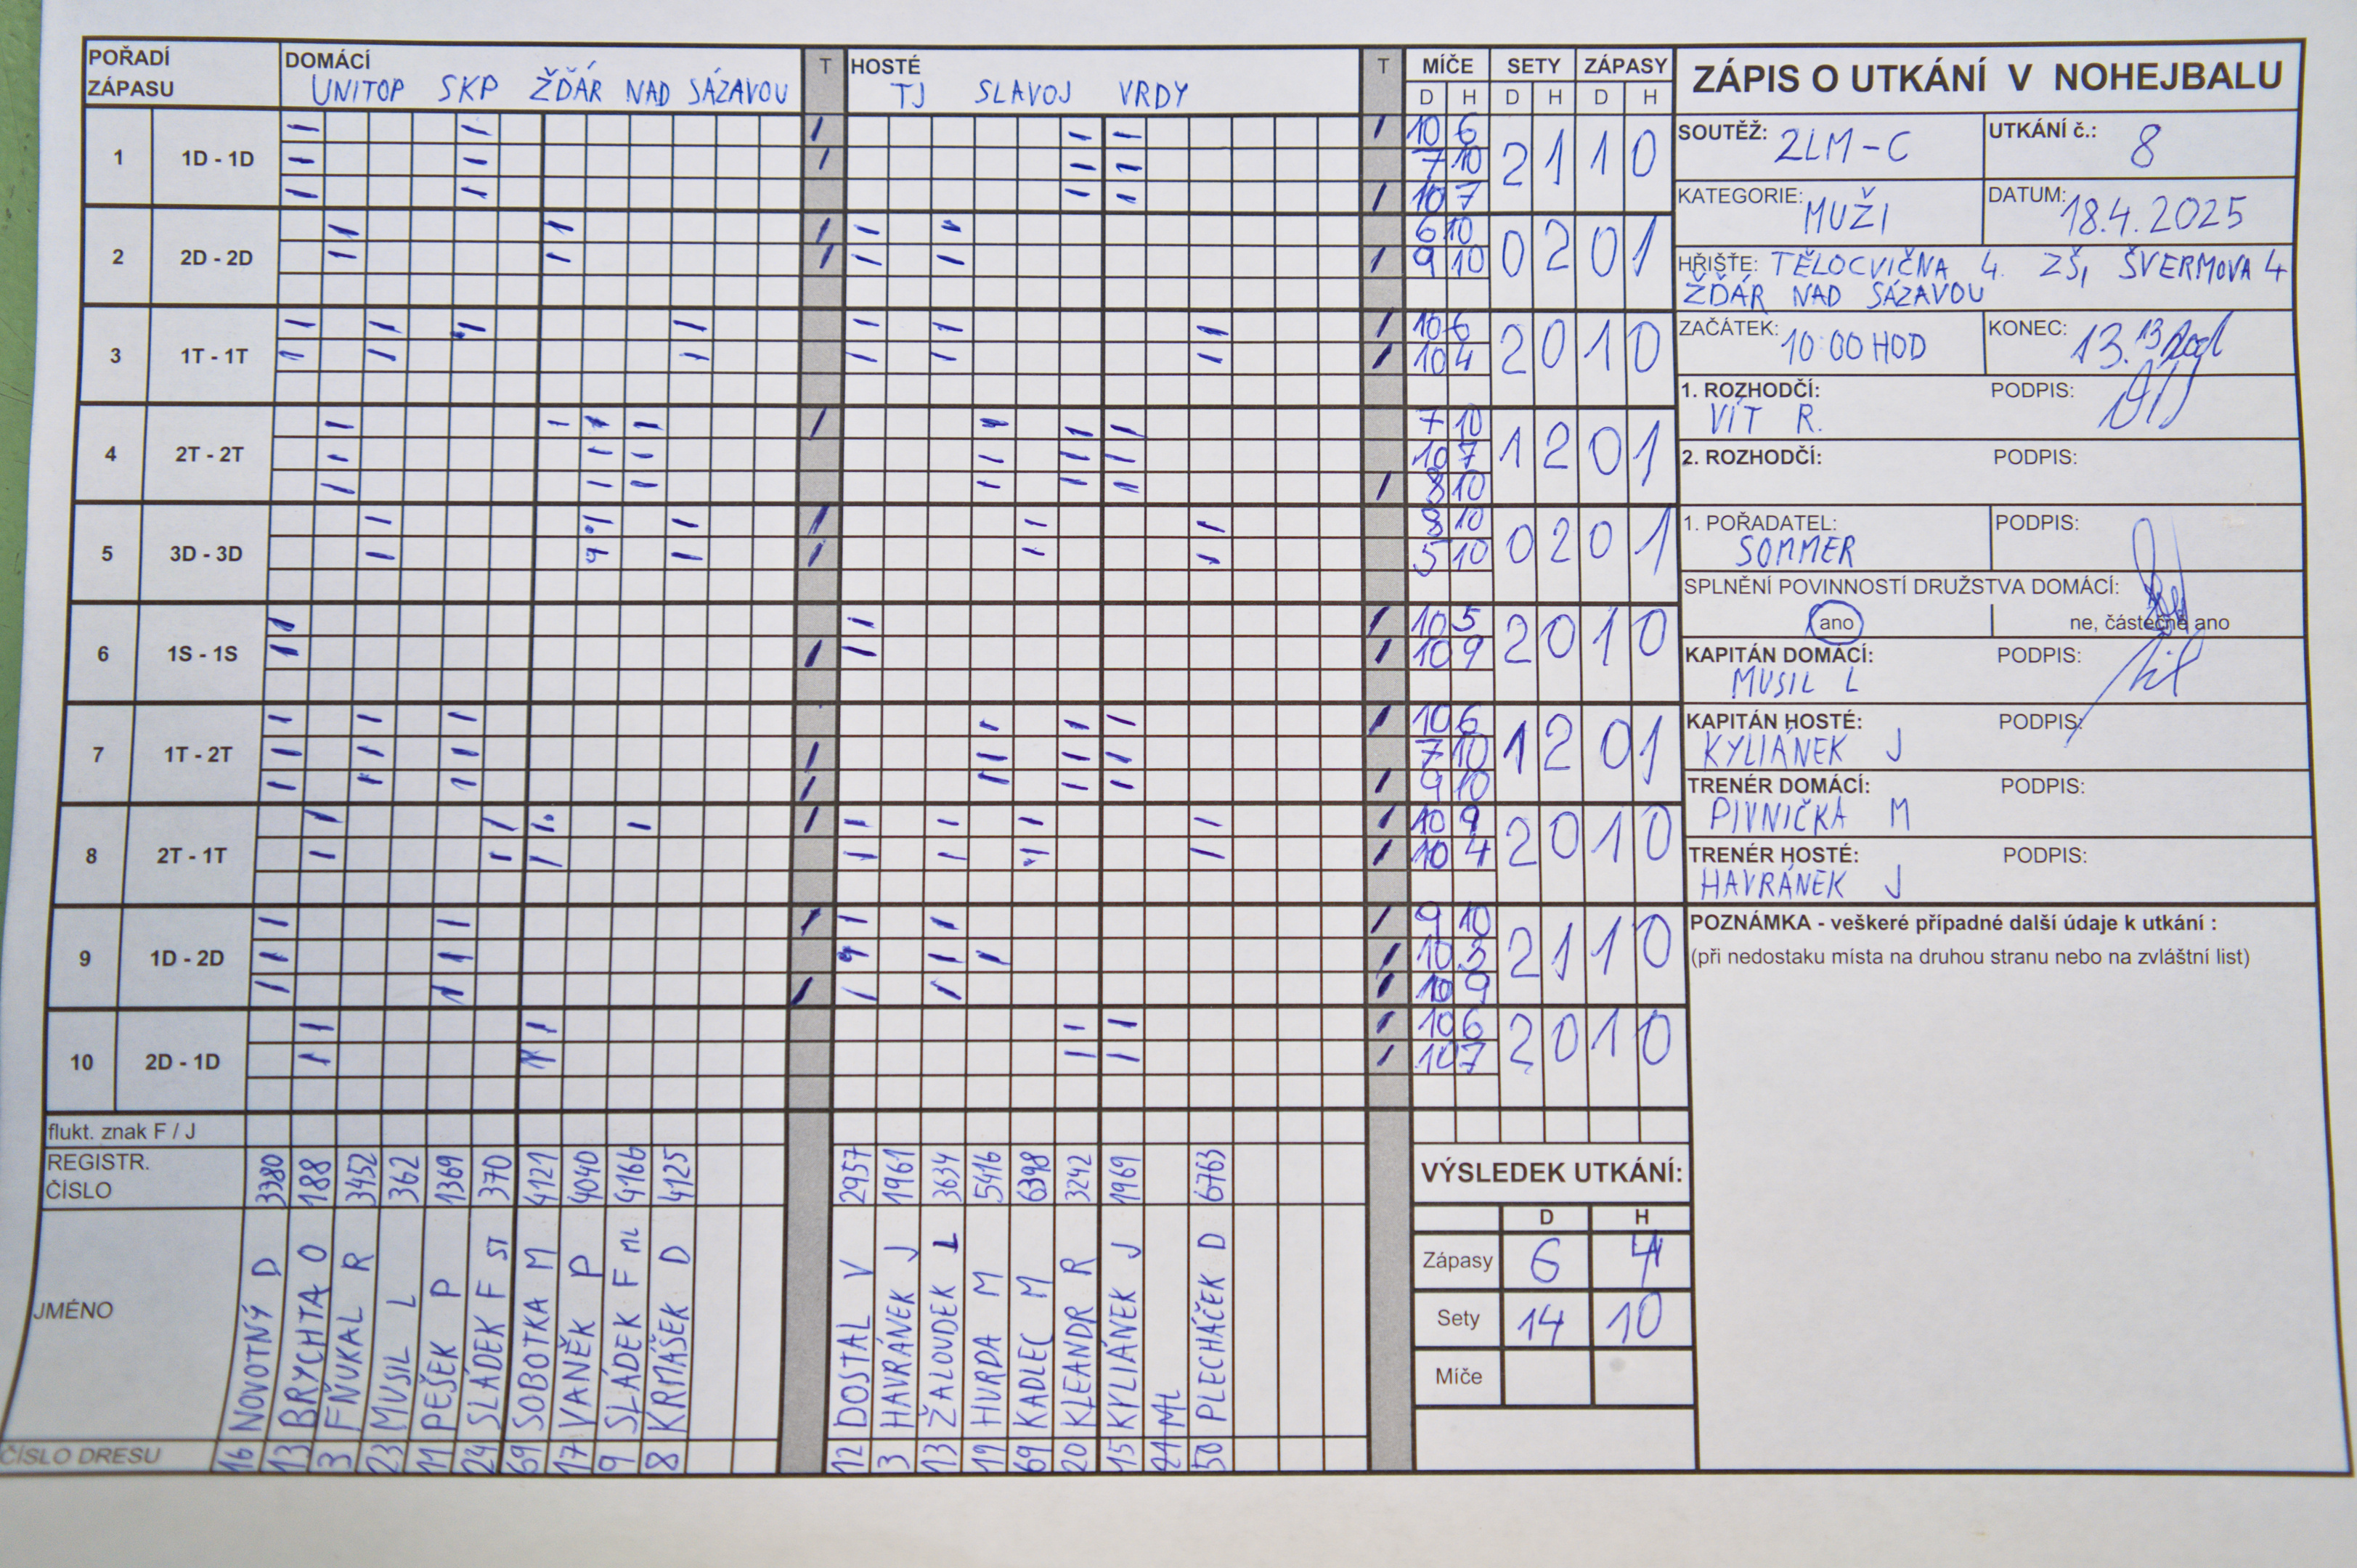 POŘADÍ ZÁPASU
DOMÁCÍ
UNITOP SKP ŽĎÁR NAD SÁZAVOU
T
HOSTÉ
TJ SLAVOJ VRDY
T
MÍČE SETY ZÁPASY
D H D H D H
ZÁPIS O UTKÁNÍ V NOHEJBALU
SOUTĚŽ: 2LM-C
UTKÁNÍ č.: 8
KATEGORIE: MUŽI
DATUM: 18.4.2025
HŘIŠTE: TĚLOCVIČNA 4. ZŠ, ŠVERMOVA 4
ŽĎÁR NAD SÁZAVOU
ZAČÁTEK: 10:00 HOD
KONEC: 13.13
1. ROZHODČÍ: PODPIS:
VÍT R.
2. ROZHODČÍ: PODPIS:
1. POŘADATEL: PODPIS:
SOMMER
SPLNĚNÍ POVINNOSTÍ DRUŽSTVA DOMÁCÍ:
ano ne, částečně ano
KAPITÁN DOMÁCÍ: PODPIS:
MUSIL L
KAPITÁN HOSTÉ: PODPIS:
KYLIÁNEK J
TRENÉR DOMÁCÍ: PODPIS:
PIVNIČKA M
TRENÉR HOSTÉ: PODPIS:
HAVRÁNEK J
POZNÁMKA - veškeré případné další údaje k utkání :
(při nedostaku místa na druhou stranu nebo na zvláštní list)
1 1D - 1D
10 6
7 10 2 1 1 0
10 7
2 2D - 2D
6 10
9 10 0 2 0 1
3 1T - 1T
10 6
10 4 2 0 1 0
4 2T - 2T
7 10
10 7 1 2 0 1
8 10
5 3D - 3D
8 10
5 10 0 2 0 1
6 1S - 1S
10 5
10 9 2 0 1 0
7 1T - 2T
10 6
7 10 1 2 0 1
9 10
8 2T - 1T
10 9
10 4 2 0 1 0
9 1D - 2D
9 10
10 3 2 1 1 0
10 9
10 2D - 1D
10 6
10 7 2 0 1 0
flukt. znak F / J
REGISTR. ČÍSLO
3380 188 3452 362 1369 370 4121 4040 4166 4125
2957 1961 3634 5416 6398 3242 1969 6763
JMÉNO
NOVOTNÝ D
BRYCHTA O
FŇUKAL R
MUSIL L
PEŠEK P
SLÁDEK F ST
SOBOTKA M
VANĚK P
SLÁDEK F ML
KRMÁŠEK D
DOSTAL V
HAVRÁNEK J
ŽALOUDEK L
HURDA M
KADLEC M
KLEANDR R
KYLIÁNEK J
PLECHÁČEK D
ČÍSLO DRESU
16 13 3 23 11 24 69 17 9 8
12 3 13 19 69 20 15 50
VÝSLEDEK UTKÁNÍ:
D H
Zápasy 6 4
Sety 14 10
Míče